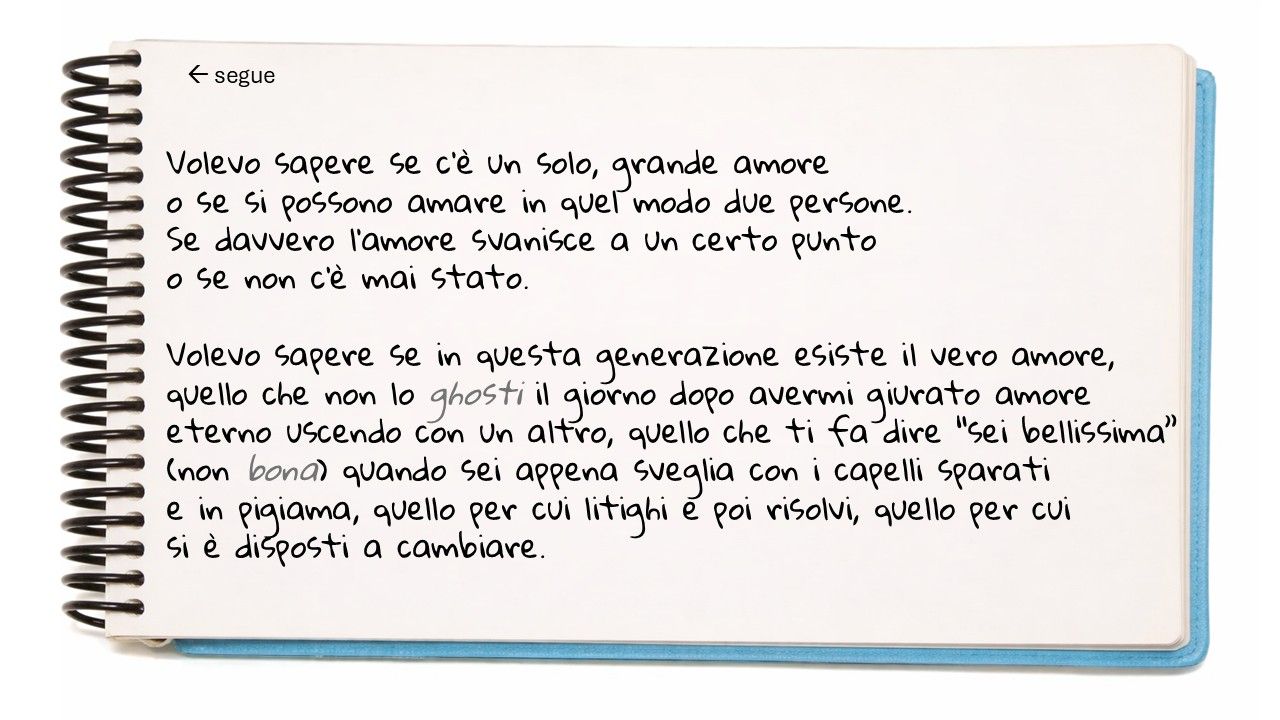 ← segue
Volevo sapere se c'è un solo, grande amore
o se si possono amare in quel modo due persone.
Se davvero l'amore svanisce a un certo punto
o se non c'è mai stato.
Volevo sapere se in questa generazione esiste il vero amore,
quello che non lo ghosti il giorno dopo avermi giurato amore
eterno uscendo con un altro, quello che ti fa dire "sei bellissima"
(non bona) quando sei appena sveglia con i capelli sparati
e in pigiama, quello per cui litighi e poi risolvi, quello per cui
si è disposti a cambiare.